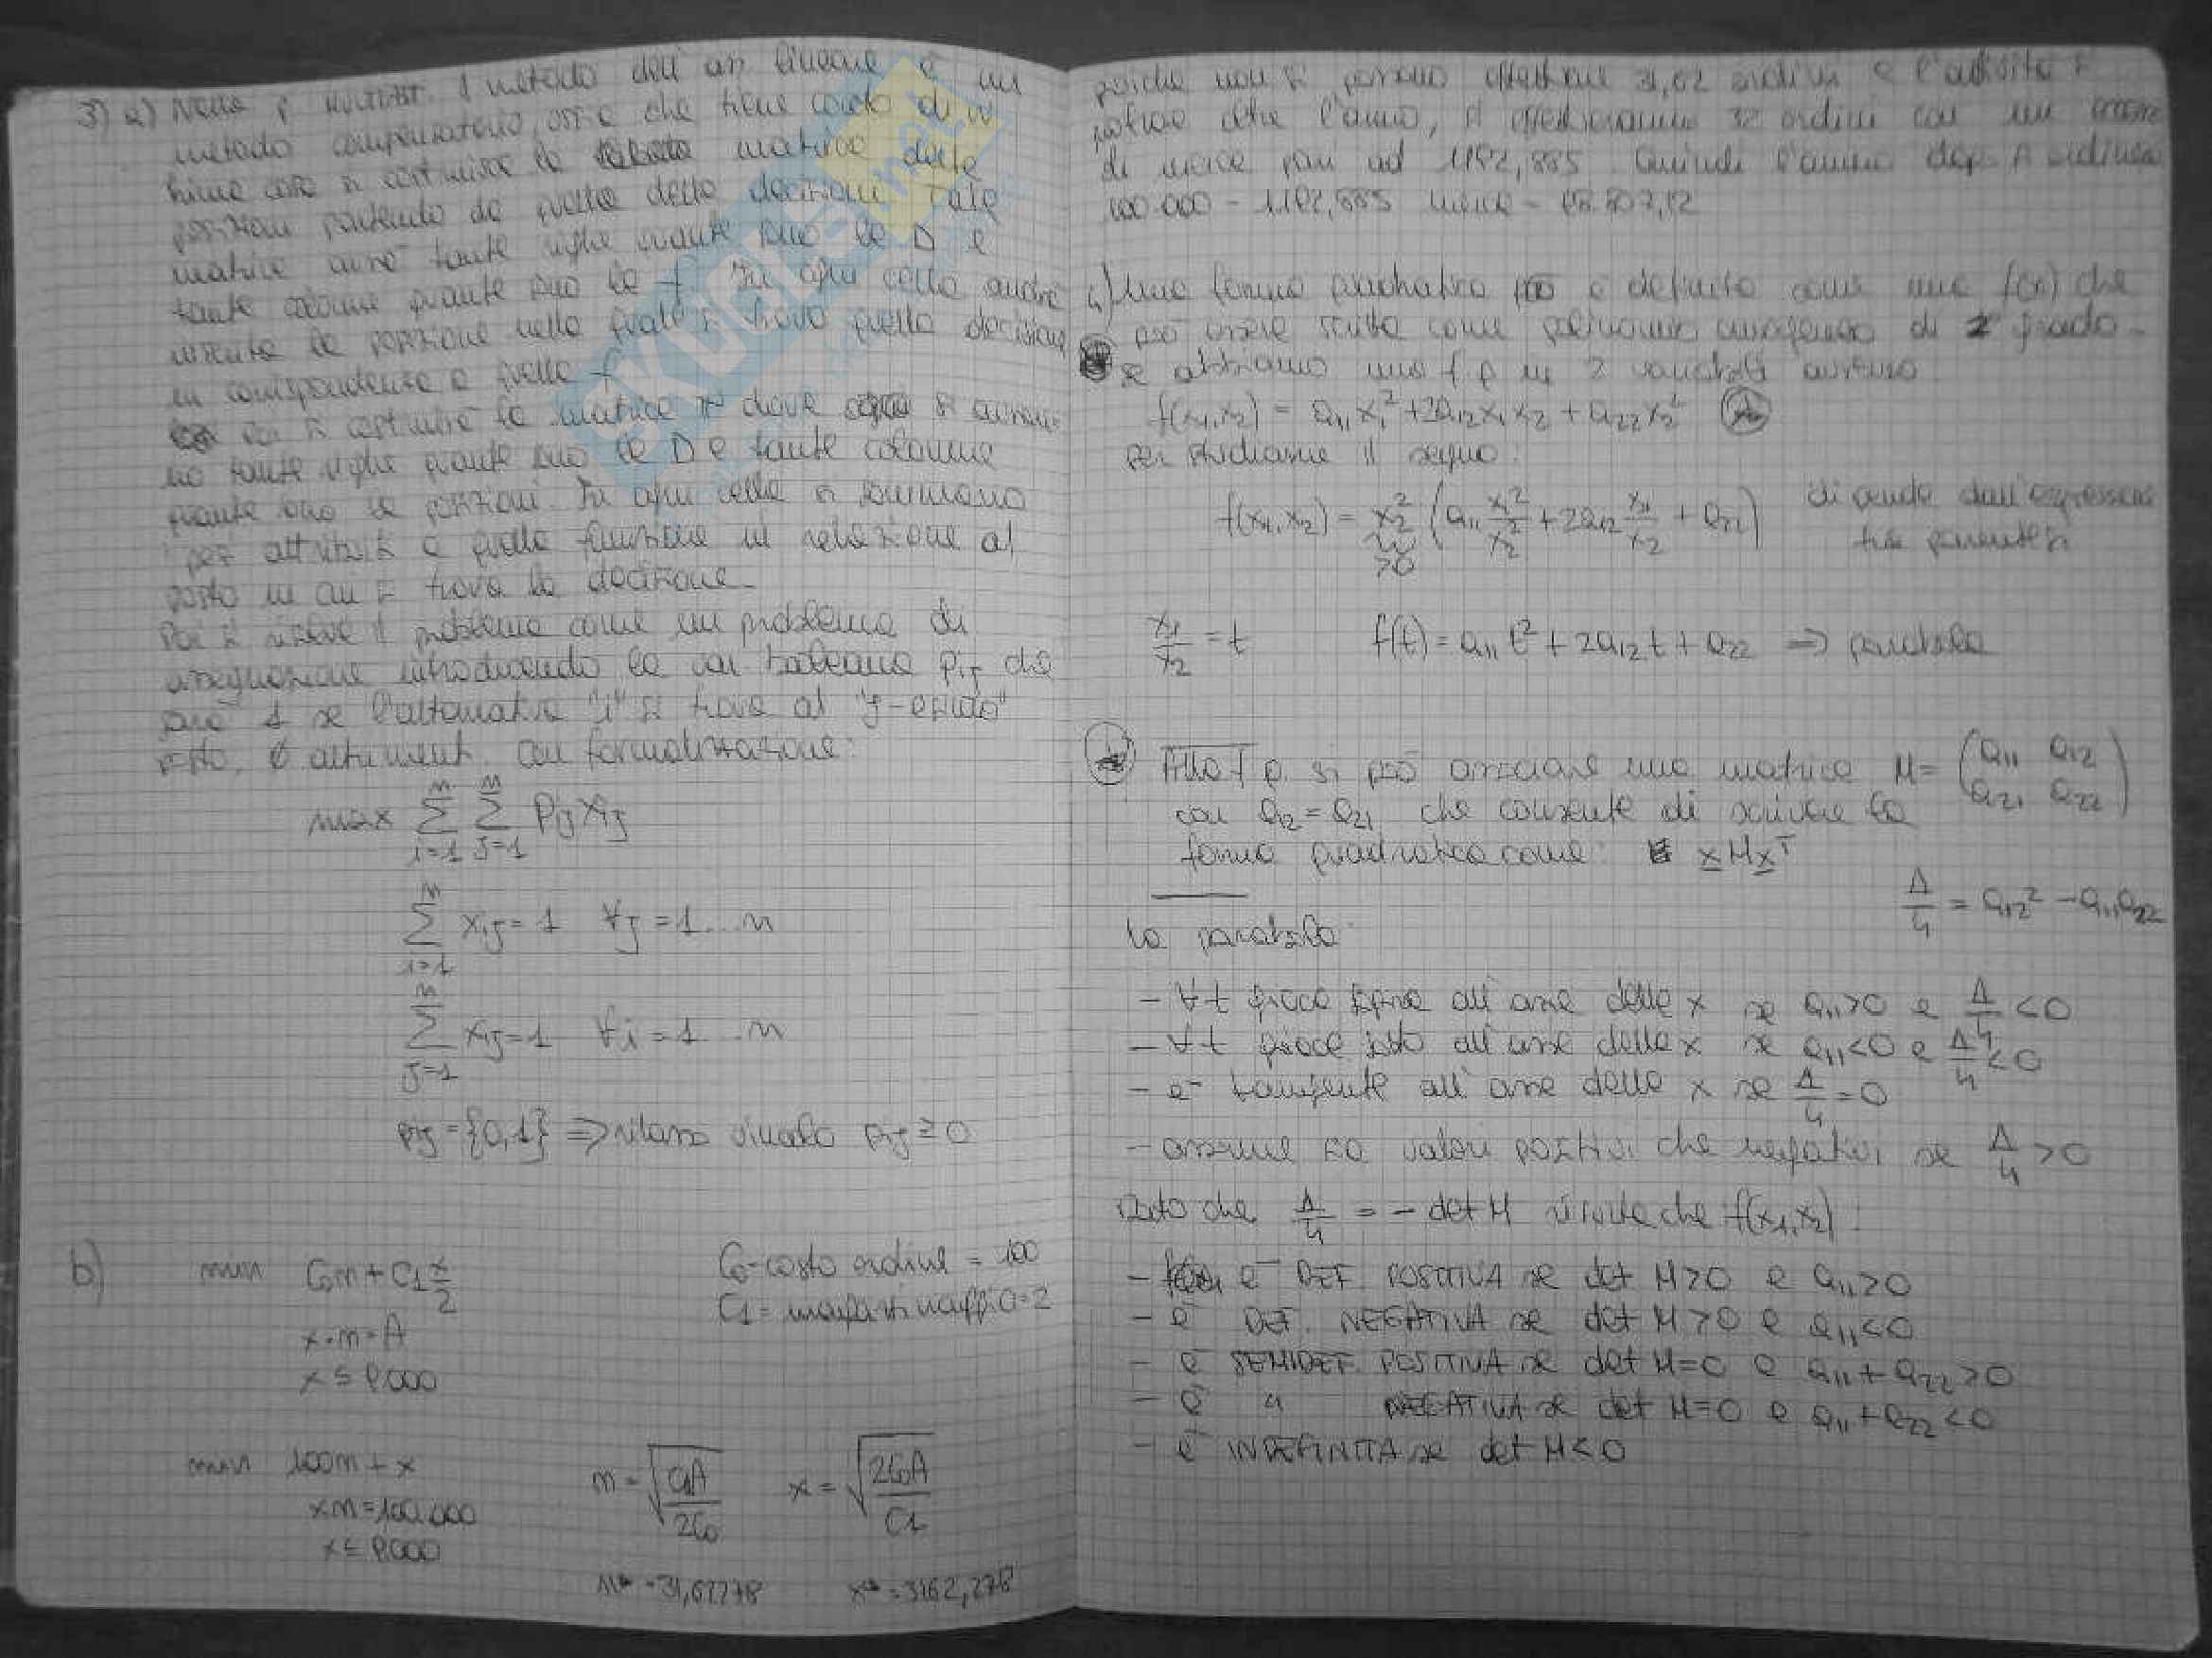 3) a) Nella p multiob. il metodo dell'ass lineare è un
metodo compensatorio, ossia che tiene conto di w
prima cosa si costruisce la matrice delle
posizioni partendo da quella delle decisioni. Tale
matrice avrà tante righe quante sono le D e
tante colonne quante sono le f. In ogni cella andrà
inserita la posizione nella quale si trova quella decisione
in corrispondenza a quella f
poi si costruisce la matrice π dove si avran-
no tante righe quante sono le D e tante colonne
quante sono le posizioni. In ogni cella si sommano
i pesi attribuiti a quella funzione in relazione al
posto in cui si trova la decisione.
Poi si risolve il problema come un problema di
assegnazione introducendo la var booleana pij che
sarà 1 se l'alternativa "i" si trova al "j-esimo"
posto, 0 altrimenti. con formalizzazione:
max Σ i=1 n Σ j=1 n Pij xij
Σ i=1 n xij = 1 ∀j = 1...n
Σ j=1 n xij = 1 ∀i = 1...n
pij = {0,1} ⇒ rilasso vincolo pij ≥ 0
b) min C0n + C1 x/2
C0 = costo ordine = 100
C1 = magazzinaggio = 2
x·n = A
x ≤ 9000
min 100n + x
xn = 100.000
x ≤ 9000
n = √(C1A/2C0) x = √(2C0A/C1)
n* = 31,62278 x* = 3162,278
perché non si possono effettuare 31,62 ordini e l'attività si
protrae oltre l'anno, si effettueranno 32 ordini con un
di merce pari ad 1192,885. Quindi l'anno dopo si ordinerà
100.000 - 1192,885 merce = 98.807,12
4) Una forma quadratica è definita come una f(x) che
può essere scritta come polinomio omogeneo di 2° grado.
se abbiamo una f q in 2 variabili avremo
f(x1,x2) = a11x1² + 2a12x1x2 + a22x2²
per studiarne il segno:
f(x1,x2) = x2² (a11 x1²/x2² + 2a12 x1/x2 + a22) dipende dall'espressione
>0 tra parentesi
x1/x2 = t f(t) = a11t² + 2a12t + a22 ⇒ parabola
Alla f q. si può associare una matrice M = (a11 a12
a21 a22)
con a12 = a21 che consente di scrivere la
forma quadratica come: x M xᵀ
Δ/4 = a12² - a11a22
la parabola:
- ∀t giace sopra all'asse delle x se a11>0 e Δ/4 <0
- ∀t giace sotto all'asse delle x se a11<0 e Δ/4 <0
- è tangente all'asse delle x se Δ/4 = 0
- assume sia valori positivi che negativi se Δ/4 > 0
Dato che Δ/4 = - det M risulta che f(x1,x2):
- è DEF. POSITIVA se det M>0 e a11>0
- è DEF. NEGATIVA se det M>0 e a11<0
- è SEMIDEF. POSITIVA se det M=0 e a11+a22>0
- è " NEGATIVA se det M=0 e a11+a22<0
- è INDEFINITA se det M<0
SKUOLA.net